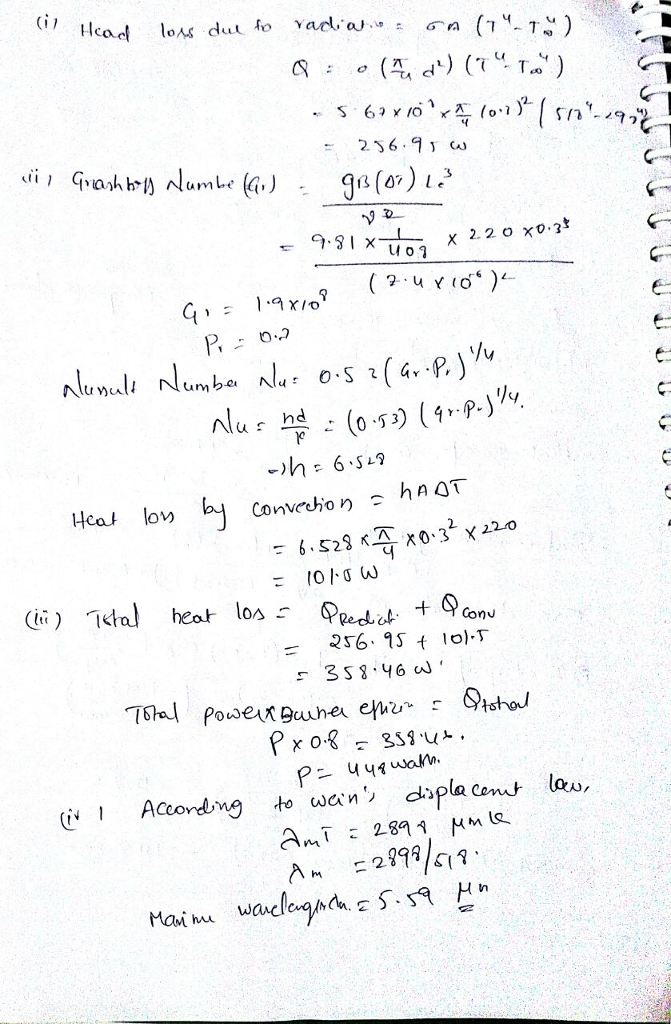 (i) Head loss due to radiatio = σA (T⁴-T∞⁴)
Q = σ (π/4 d²) (T⁴-T∞⁴)
= 5.67x10 x π/4 (0.3)² (518⁴-298⁴)
= 256.95 w
(ii) Grashboff Numbe (Gr) = gB(ΔT) Lc³ / ν²
= 9.81 x 1/408 x 220 x0.3³ / (2.4 x10⁶)²
Gr = 1.9x10⁸
Pr = 0.7
Nusult Number Nu = 0.53 (Gr.Pr)^1/4
Nu = hd/k = (0.53) (Gr.Pr)^1/4.
→h = 6.528
Heat loss by convection = hAΔT
= 6.528 x π/4 x0.3² x 220
= 101.5 W
(iii) Total heat loss = QRediat. + Qconv
= 256.95 + 101.5
= 358.46 w
Total power x Burner effizin = Qtotal
P x 0.8 = 358.46.
P = 448 watts.
(iv) According to wein's displacemt law,
λmT = 2898 μmk
λm = 2898/518.
Maximu wavelength. = 5.59 μm